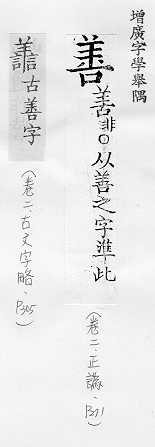 增廣字學舉隅
善善非〇从善之字準此
(卷二、正譌、
譱古善字
(卷二、古文字略、P305)